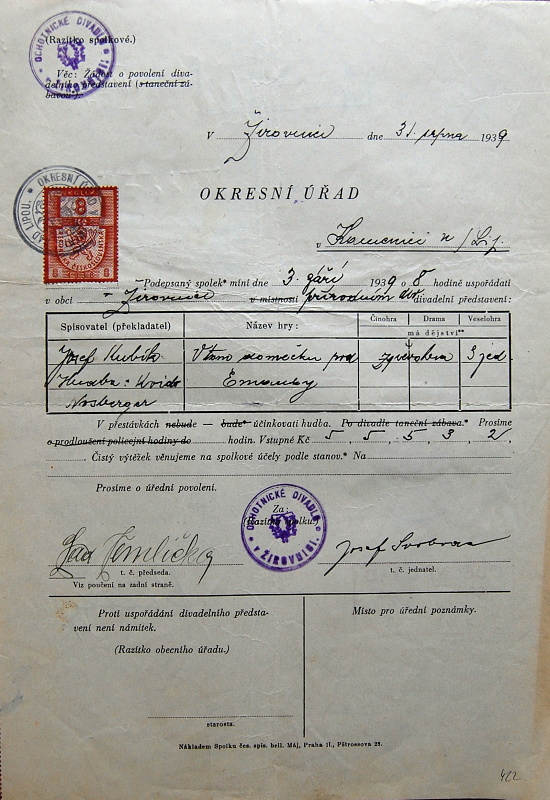 OCHOTNICKÉ DIVADLO
(Razítko spolkové.)
Věc: Žádost o povolení diva-
delního představení (s taneční zá-
bavou).
V Žirovnici dne 31. srpna 1939
OKRESNÍ ÚŘAD
NAD LIPOU. OKRESNÍ ÚŘAD
8
ČESKOSLOVENSKÁ
8 8
v Kamenici n/Lip.
Podepsaný spolek* míní dne 3. září 1939 o 8 hodině uspořádati
v obci Žirovnici v místnosti přírodním divadelní představení:
Spisovatel (překladatel) Název hry: Činohra Drama Veselohra
má dějství**
Josef Kubík V tom domečku pod zpěvohra 3 jed.
Hudba: Kvido Emauzy
Nosberger
V přestávkách nebude — bude* účinkovati hudba. Po divadle taneční zábava.* Prosíme
o prodloušení policejní hodiny do hodin. Vstupné Kč 5, 5, 5, 3, 2,
Čistý výtěžek věnujeme na spolkové účely podle stanov.* Na
Prosíme o úřední povolení.
Za:
(Razítko spolku:)
OCHOTNICKÉ DIVADLO
v ŽIROVNICI.
Lad Josef Svoboda
t. č. předseda. t. č. jednatel.
Viz poučení na zadní straně.
Proti uspořádání divadelního předsta-
vení není námitek.
(Razítko obecního úřadu.)
Místo pro úřední poznámky.
starosta.
Nákladem Spolku čes. spis. bell. Máj, Praha II., Pštrossova 23.
422